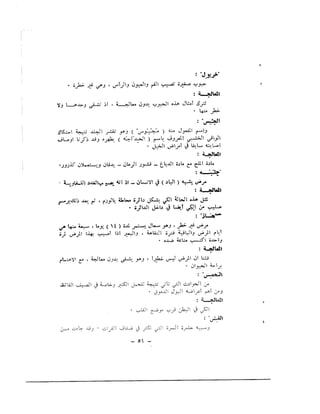 "خربول" :
حبوب صغيرة تصيب الفم والعيون والرأس ، وهي غير خطرة .
المعالجة :
تترك أمثال هذه الحبوب بدون معالجة ، اذ تشفى وحدها ولا
خطر منها .
الجنس" :
واسم المفعول منه ( ) وهو تقشر الجلد نتيجة احتكاك
الواقي الخشبي المعروف باسم ( ) بظهره وقد ذكرنا اوصاف
اصابته سابقا في أمراض الخيل .
المعالجة :
مادة الملح مع مادة الدباغ - قشور الرمان - يدقان ويستعملان كذرور .
مرض يشبه ( ) في الانسان - اذ انه يصيب الغدد اللمفاوية .
المعالجة :
تشق هذه الحالة الكي بشكل دائرة محاطة بالورم ، ثم بعد ذلك يرسم
صليب من الكي أيضا في داخل الدائرة .
مرض غير خطر ، وهو سعال يستمر لمدة ( ١٤ ) يوما ، سبعة منها هي
أيام المرض والباقية فترة النقاهة ، والبعير اذا أصيب بهذا المرض مرة
واحدة اكتسب مناعة ضده .
المعالجة :
قلنا ان المرض ليس خطيرا ، وهو يشفى بدون معالجة ، مع الاهتمام
براحة الحيوان .
من الحوادث التي تأتي نتيجة للحمل الكثير وخاصة في الصيف القائظ
ومن أهم أعراضه البول الدموي .
المعالجة :
الكي في البطن قرب موضع القلب .
القبش" :
وسببه حشرة التي تكثر في ضفاف الفرات - وقد جاءت من
- ٥٦ -